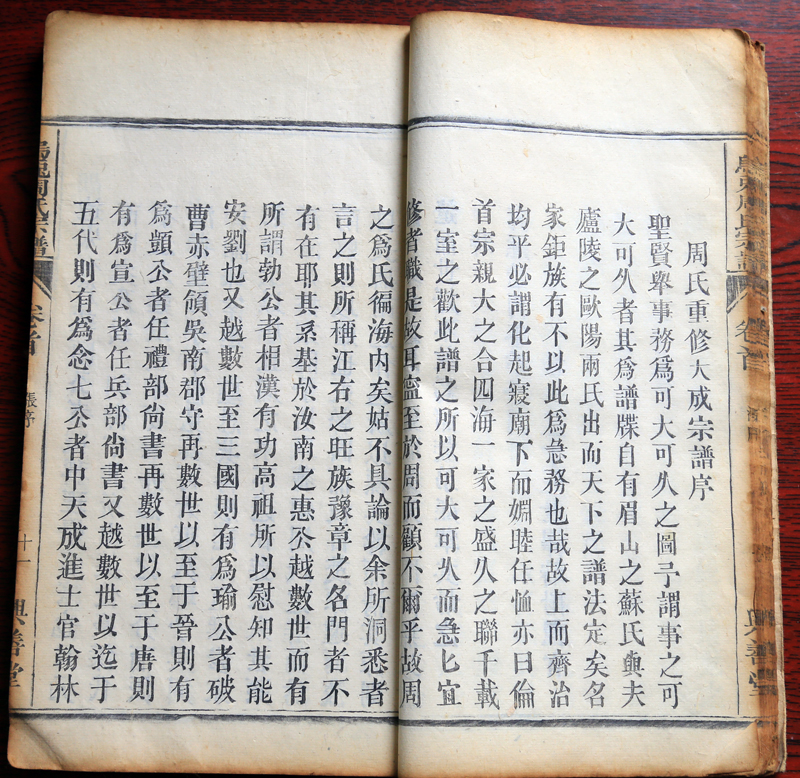 周氏重修大成宗譜序
聖賢舉事務爲可大可久之圖予謂事之可
大可久者其爲譜牒自有眉山之蘇氏與夫
廬陵之歐陽兩氏出而天下之譜法定矣名
家鉅族有不以此爲急務也哉故上而齊治
均平必謂化起寢廟下而婣睦任恤亦曰倫
首宗親大之合四海一家之盛久之聯千載
一室之歡此譜之所以可大可久而急匕宜
修者職是故耳盖至於周而顧不爾乎故周
之爲氏徧海内矣姑不具論以余所洞悉者
言之則所稱江右之旺族豫章之名門者不
有在耶其系基於汝南之惠公越數世而有
所謂勃公者相漢有功高祖所以慰知其能
安劉也又越數世至三國則有爲瑜公者破
曹赤壁領吳南郡守再數世以至于晉則有
爲顗公者任禮部尚書再數世以至于唐則
有爲宣公者任兵部尚書又越數世以迄于
五代則有爲念七公者中天成進士官翰林
周氏宗譜
卷首
張序
十一
興善堂